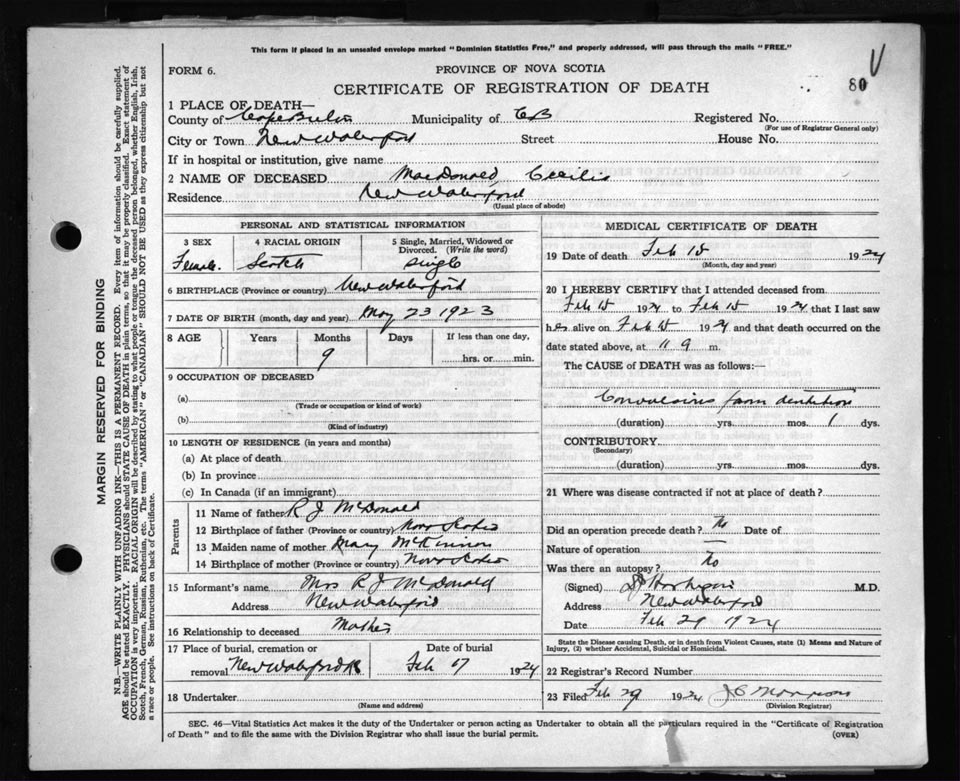 This form if placed in an unsealed envelope marked "Dominion Statistics Free," and properly addressed, will pass through the mails "FREE."
FORM 6.
PROVINCE OF NOVA SCOTIA
CERTIFICATE OF REGISTRATION OF DEATH
80
1 PLACE OF DEATH—
County of Cape Breton Municipality of CB Registered No.
(For use of Registrar General only)
City or Town New Waterford Street House No.
If in hospital or institution, give name
2 NAME OF DECEASED MacDonald Cecilia
Residence New Waterford
(Usual place of abode)
PERSONAL AND STATISTICAL INFORMATION
3 SEX 4 RACIAL ORIGIN 5 Single, Married, Widowed or Divorced. (Write the word)
Female. Scotch single
6 BIRTHPLACE (Province or country) New Waterford
7 DATE OF BIRTH (month, day and year) May 23 1923
8 AGE Years Months Days If less than one day,
9 hrs. or min.
9 OCCUPATION OF DECEASED
(a)
(Trade or occupation or kind of work)
(b)
(Kind of industry)
10 LENGTH OF RESIDENCE (in years and months)
(a) At place of death
(b) In province
(c) In Canada (if an immigrant)
Parents
11 Name of father R J McDonald
12 Birthplace of father (Province or country) Nova Scotia
13 Maiden name of mother Mary McKinnon
14 Birthplace of mother (Province or country) Nova Scotia
15 Informant's name Mrs R J McDonald
Address New Waterford
16 Relationship to deceased Mother
17 Place of burial, cremation or Date of burial
removal New Waterford Feb 17 1924
18 Undertaker
(Name and address)
MEDICAL CERTIFICATE OF DEATH
19 Date of death Feb 15 1924
(Month, day and year)
20 I HEREBY CERTIFY that I attended deceased from
Feb 15 1924 to Feb 15 1924 that I last saw
her alive on Feb 15 1924 and that death occurred on the
date stated above, at 11 9 m.
The CAUSE of DEATH was as follows:—
Convulsions from dentition
(duration) yrs. mos. 1 dys.
CONTRIBUTORY
(Secondary)
(duration) yrs. mos. dys.
21 Where was disease contracted if not at place of death?
Did an operation precede death? No Date of
Nature of operation —
Was there an autopsy? No
(Signed) M.D.
Address New Waterford
Date Feb 29 1924
State the Disease causing Death, or in death from Violent Causes, state (1) Means and Nature of
Injury, (2) whether Accidental, Suicidal or Homicidal.
22 Registrar's Record Number
23 Filed Feb 29 1924 J C Morrison
(Division Registrar)
SEC. 46—Vital Statistics Act makes it the duty of the Undertaker or person acting as Undertaker to obtain all the particulars required in the "Certificate of Registration
of Death" and to file the same with the Division Registrar who shall issue the burial permit.
(OVER)
MARGIN RESERVED FOR BINDING
N.B.—WRITE PLAINLY WITH UNFADING INK—THIS IS A PERMANENT RECORD. Every item of information should be carefully supplied.
AGE should be stated EXACTLY. PHYSICIANS should STATE CAUSE OF DEATH in plain terms, so that it may be properly classified. Exact statement of
OCCUPATION is very important. RACIAL ORIGIN will be described by stating to what people or tongue the deceased person belonged, whether English, Irish,
Scotch, French, German, Russian, Ruthenian, etc. The terms "AMERICAN" or "CANADIAN" SHOULD NOT BE USED as they express citizenship but not
a race or people. See instructions on back of Certificate.